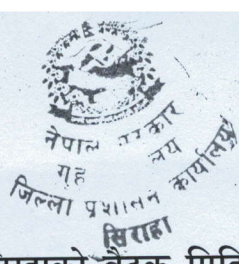 नेपाल सरकार
गृह
जिल्ला प्रशासन कार्यालय
सिराहा
बैठक मिति